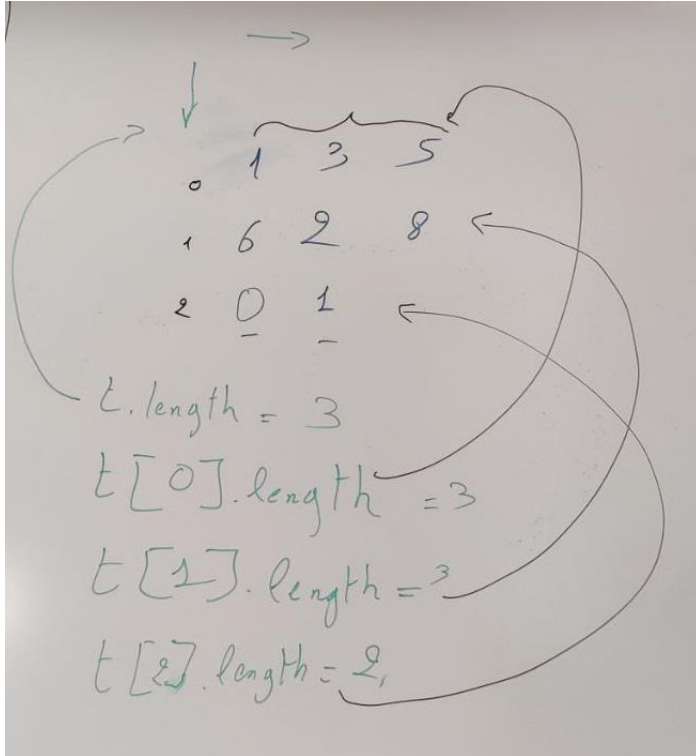 0 1 3 5
1 6 2 8
2 0 1
t.length = 3
t[0].length = 3
t[1].length = 3
t[2].length = 2,